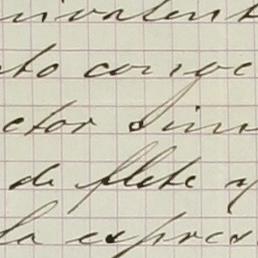 uivalent
to conge
ctor Sim
de flete y
la expres